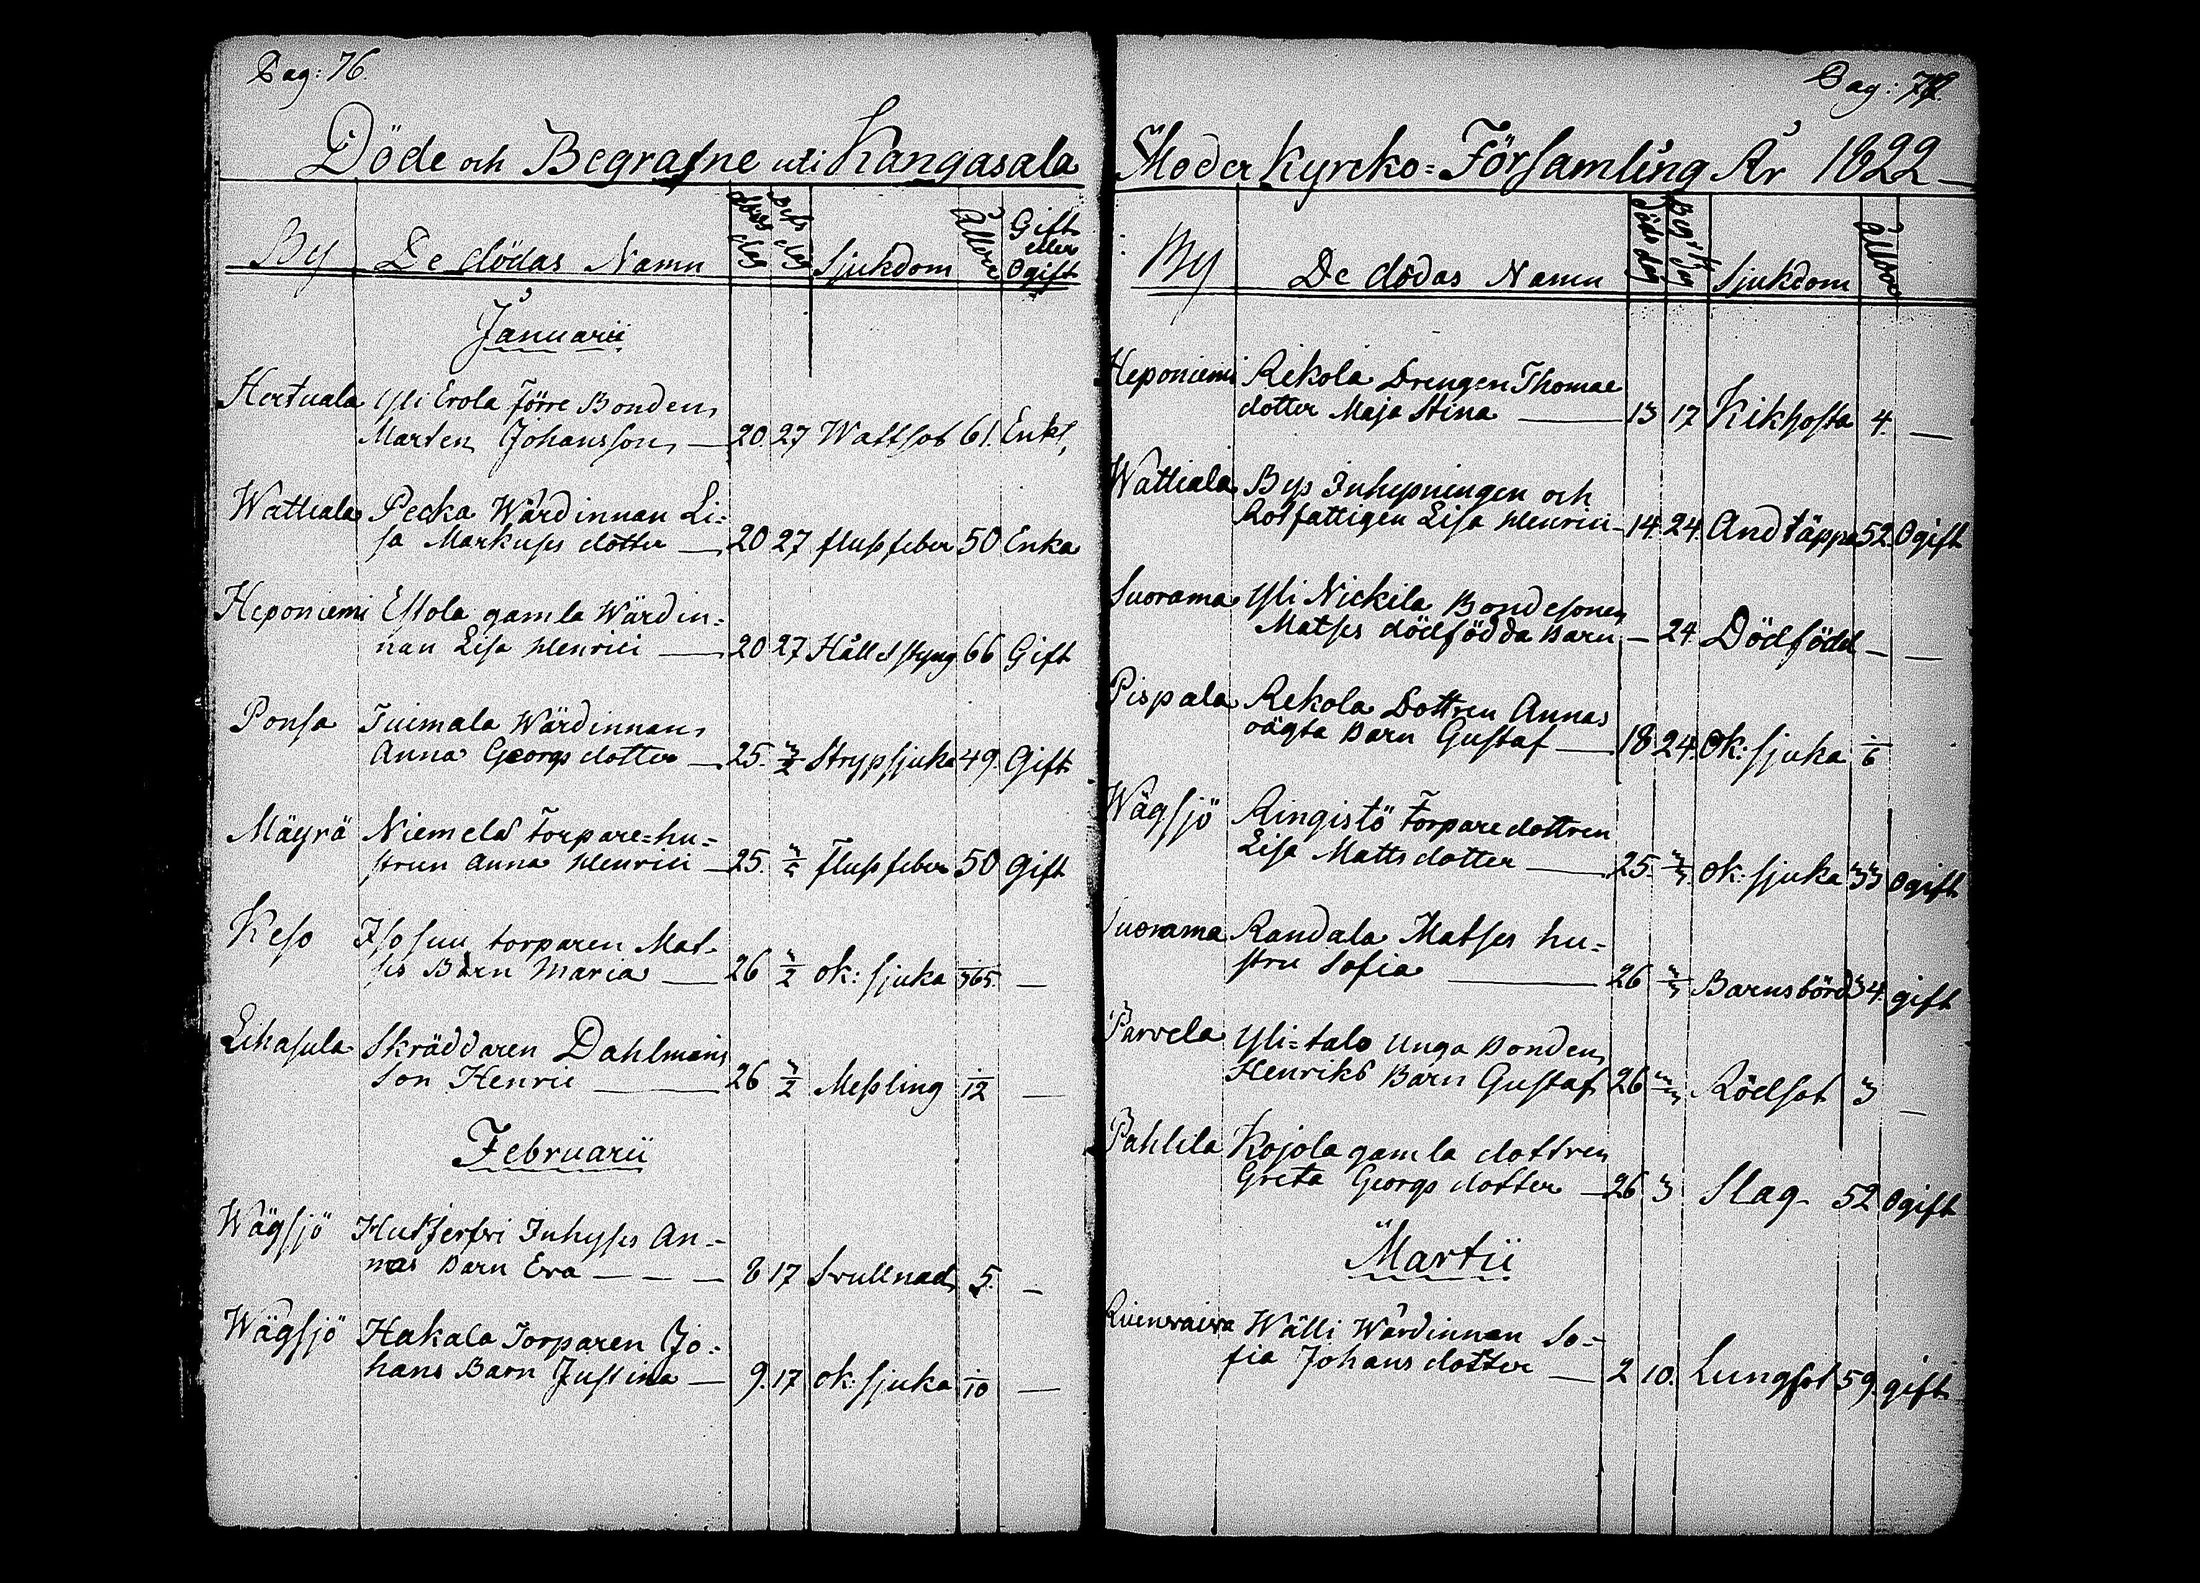 Pag: 76.
Döde och Begrafne uti Kangasala
By De dödas Namn döds dag Sjukdom Ålder Gift eller Ogift
Januarii
Hertuala Yli Erola förre Bonden
Marten Johansson — 20. 27 Wattsot 61. Enkl,
Wattiala Pecka Wärdinnan Li=
sa Markuses dotter — 20 27 flussfeber 50 Enka
Heponiemi Essola gamla Wärdin=
nan Lisa Henrici — 20 27 Håll & styng 66 Gift
Ponsa Tuimala Wärdinnan
Anna Georgs dotter — 25. 3/2 Strypsjuka 49. Gift
Mäyrä Niemelä Torpare=hu=
strun Anna Henrici — 25. 3/2 Flussfeber 50 Gift
Keso Isosuu torparen Mat=
ses Barn Maria — 26 3/2 ok: sjuka 1/365. —
Lihasula Skräddaren Dahlmans
son Henric — 26 3/2 Messling 1/12 —
Februarii
Wägsjö Inhyses An=
nas Barn Eva — — — 8 17 Svullnad 5. —
Wägsjö Hakala Torparen Jo=
hans Barn Justina — 9. 17 ok: sjuka 1/10 —
Pag: 77.
Moder Kyrcko=Församling År 1822 —
By De dödas Namn döds dag Begr: dag Sjukdom Ålder
Heponiemi Rekola Drengen Thomae
dotter Maja Stina — 13 17 Kikhosta 4. —
Wattiala Bys Inhysningen och
Rotfattigen Lisa Henrici — 14. 24. Andtäppa 52. Ogift
Suorama Yli Nickila Bondesonen
Matses dödfödda Barn — 24 Dödfödd — —
Pispala Rekola Dottren Annas
oägta Barn Gustaf — 18 24. Ok: sjuka 1/6
Wägsjö Ringistö Torparedottren
Lisa Matts dotter — 25. 3/3 ok: sjuka 33 Ogift
Suorama Randala Matses hu=
stru Sofia — 26 3/3 Barnsbörd 34. gift
Parvela Yli=talo Unga Bonden
Henriks Barn Gustaf 26 3/3 Rödsot 3 —
Pahlila Kojola gamla dottren
Greta Georgs dotter — 26 3 Slag 52 Ogift
Martii
Wälli Wärdinnan So=
fia Johans dotter — 2 10. Lungsot 59. gift